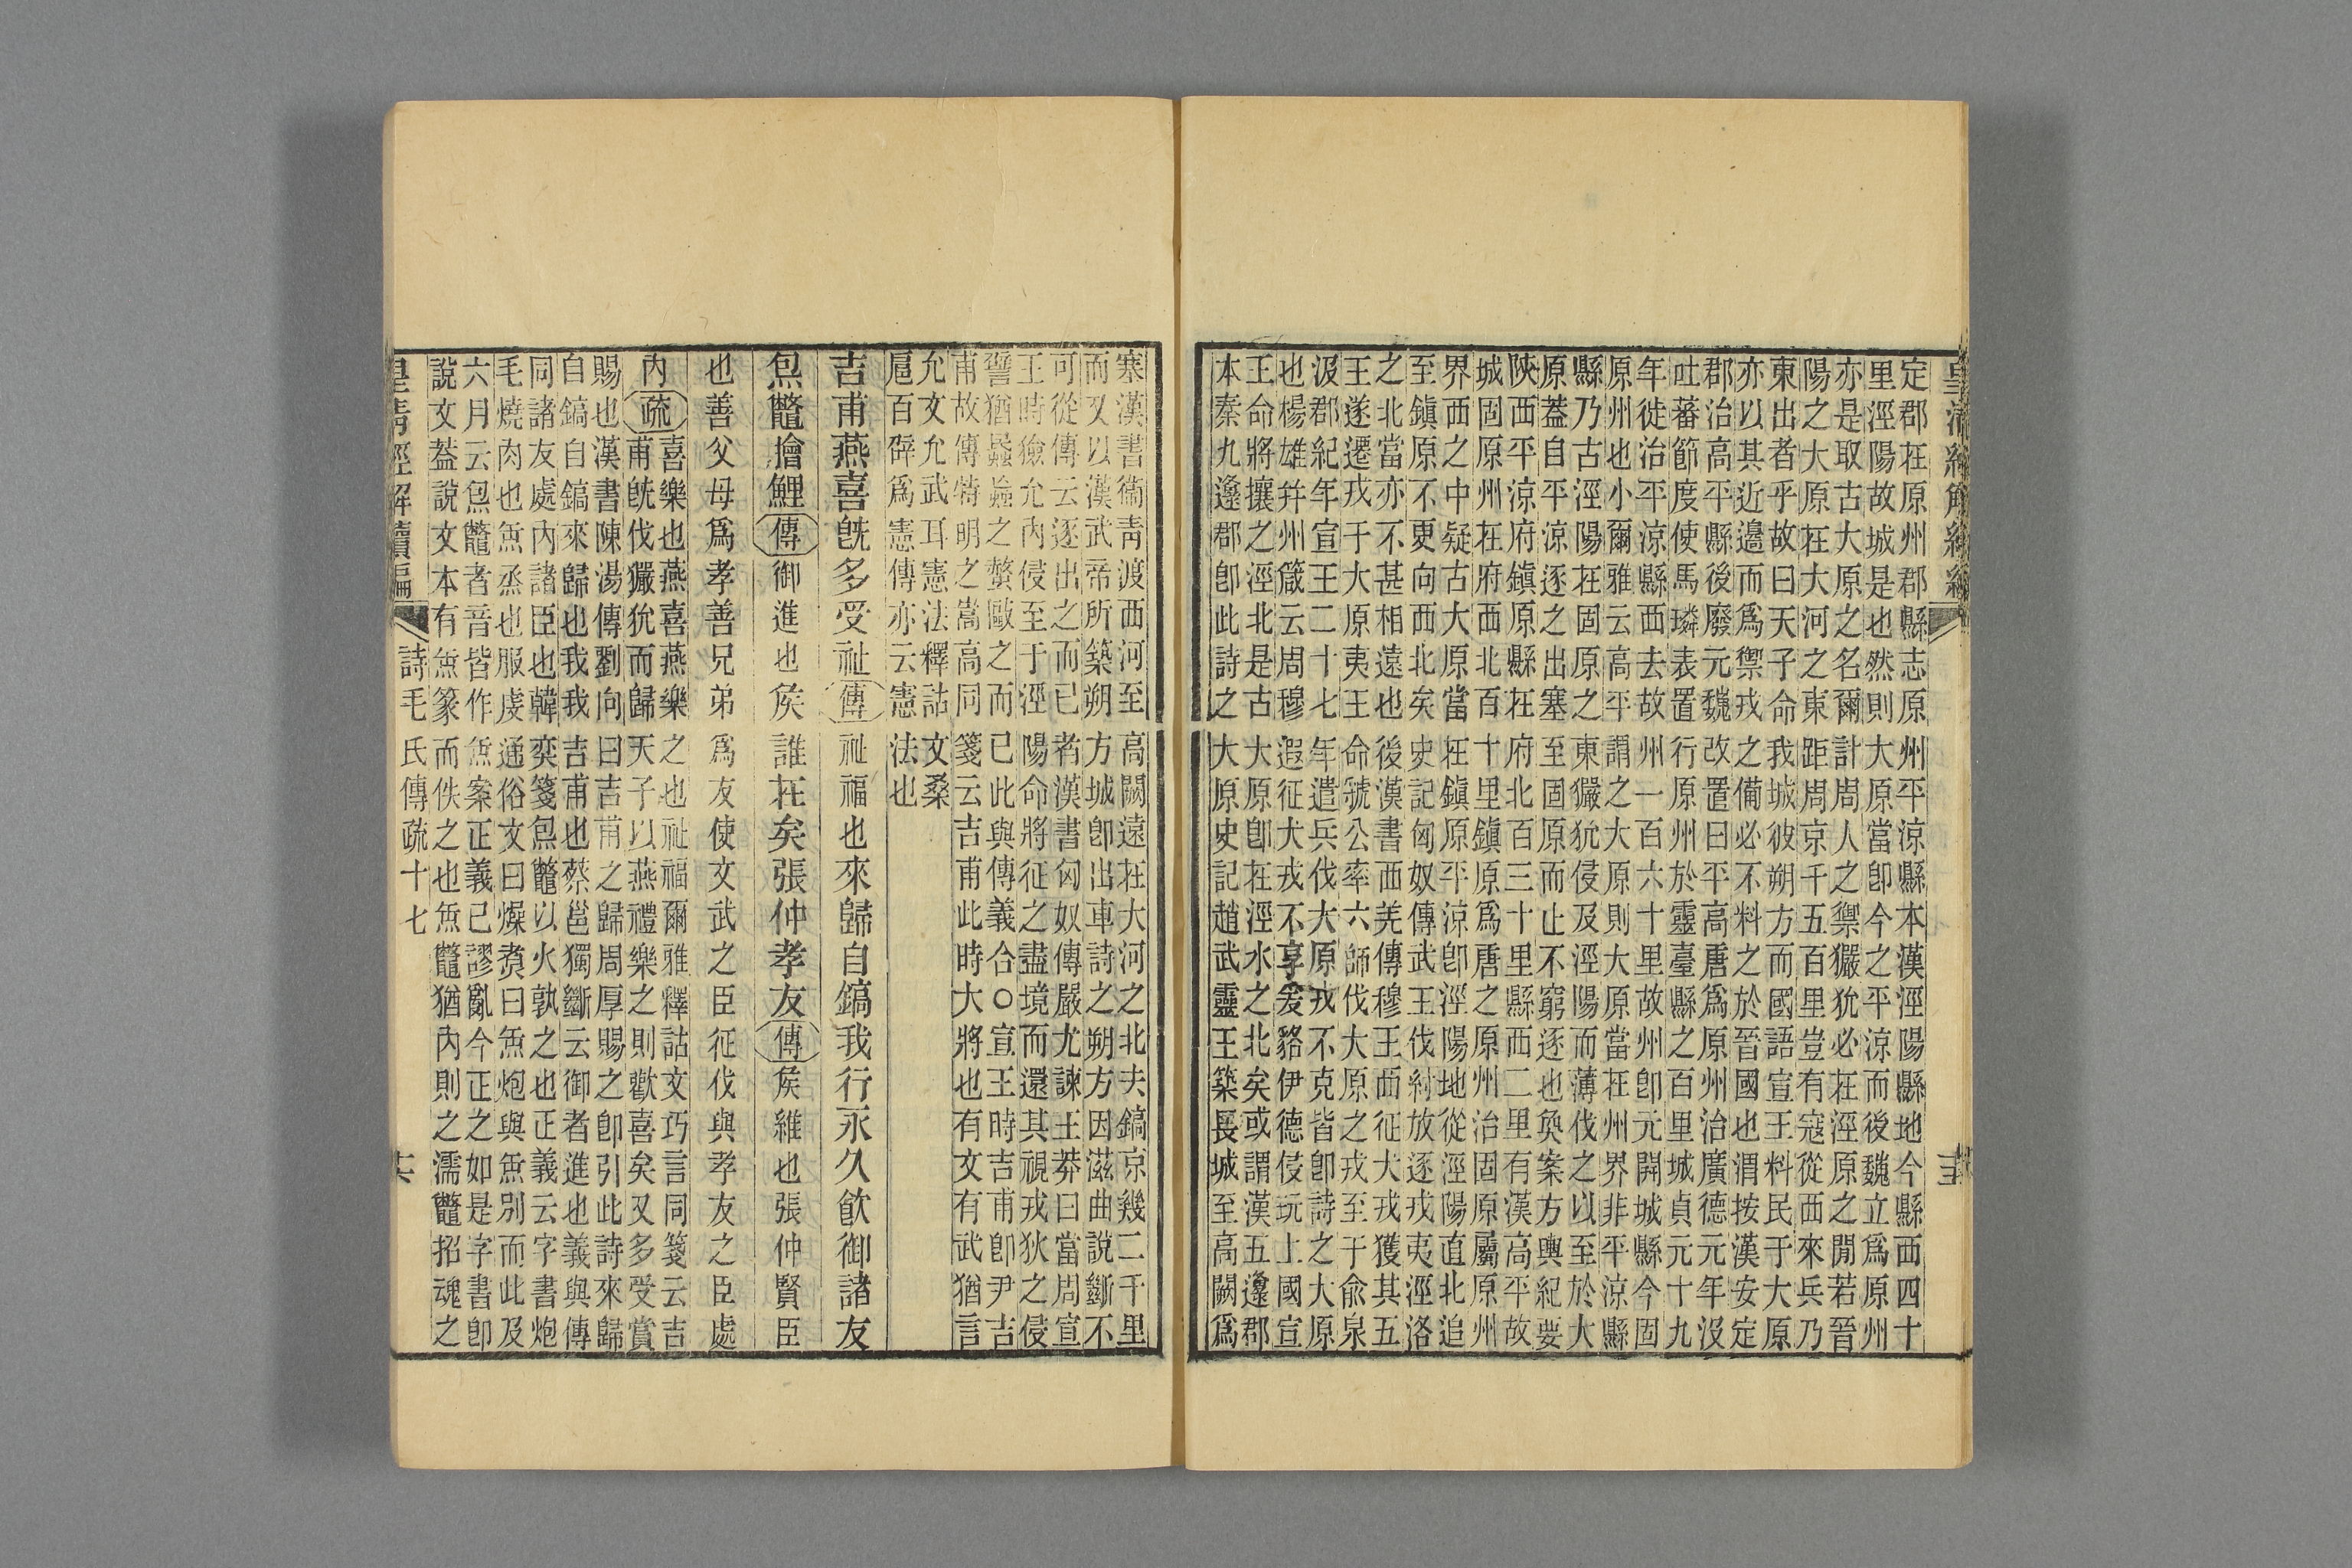 定郡在原州郡縣志原州平涼縣本漢涇陽縣地今縣西四十
里涇陽故城是也然則大原當卽今之平涼而後魏立爲原州
亦是取古大原之名爾計周人之禦玁狁必在涇原之閒若晉
陽之大原在大河之東距周京千五百里豈有寇從西來兵乃
東出者乎故曰天子命我城彼朔方而國語宣王料民于大原
亦以其近邊而爲禦戎之備必不料之於晉國也渭按漢安定
郡治高平縣後廢元魏改置曰平高唐爲原州治廣德元年沒
吐蕃節度使馬璘表置行原州於靈臺縣之百里城貞元十九
年徙治平涼縣西去故州一百六十里故州卽元開城縣今固
原州也小爾雅云高平謂之大原則大原當在州界非平涼縣
縣乃古涇陽在固原之東玁狁侵及涇陽而薄伐之以至於大
原蓋自平涼逐之出塞至固原而止不窮逐也奐案方輿紀要
陝西平涼府鎭原縣在府北百三十里縣西二里有漢高平故
城固原州在府西北百十里鎭原爲唐之原州治固原屬原州
界西之中疑古大原當在鎭原平涼卽涇陽地從涇陽直北追
至鎭原不更向西北矣史記匈奴傳武王伐紂放逐戎夷涇洛
之北當亦不甚相遠也後漢書西羌傳穆王西征犬戎獲其五
王遂遷戎于大原夷王命虢公率六師伐大原之戎至于兪泉
汲郡紀年宣王二十七年遣兵伐大原戎不克皆卽詩之大原
也楊雄幷州箴云周穆遐征犬戎不享爰貉伊德侵玩上國宣
王命將攘之涇北是古大原卽在涇水之北矣或謂漢五邊郡
本秦九邊郡卽此詩之大原史記趙武靈王築長城至高闕爲
塞漢書衞青渡西河至高闕遠在大河之北夫鎬京幾二千里
而又以漢武帝所築朔方城卽出車詩之朔方因滋曲說斷不
可從傳云逐出之而已者漢書匈奴傳嚴尤諫王莽曰當周宣
王時獫允內侵至于涇陽命將征之盡境而還其視戎狄之侵
譬猶蟁蝱之螫敺之而已此與傳義合○宣王時吉甫卽尹吉
甫故傳特明之嵩高同箋云吉甫此時大將也有文有武猶言
允文允武耳憲法釋詁文桑
扈百辟爲憲傳亦云憲法也
吉甫燕喜旣多受祉傳祉福也來歸自鎬我行永久飮御諸友
炰鼈膾鯉傳御進也矦誰在矣張仲孝友傳矦維也張仲賢臣
也善父母爲孝善兄弟爲友使文武之臣征伐與孝友之臣處
內疏喜樂也燕喜燕樂之也祉福爾雅釋詁文巧言同箋云吉
甫旣伐玁狁而歸天子以燕禮樂之則歡喜矣又多受賞
賜也漢書陳湯傳劉向曰吉甫之歸周厚賜之卽引此詩來歸
自鎬自鎬來歸也我我吉甫也蔡邕獨斷云御者進也義與傳
同諸友處內諸臣也韓奕箋炰鼈以火孰之也正義云字書炮
毛燒肉也炰烝也服虔通俗文曰燥煑曰炰炮與炰別而此及
六月云炰鼈者音皆作炰案正義已謬亂今正之如是字書卽
說文蓋說文本有炰篆而佚之也炰鼈猶內則之濡鼈招魂之
詩毛氏傳疏十七